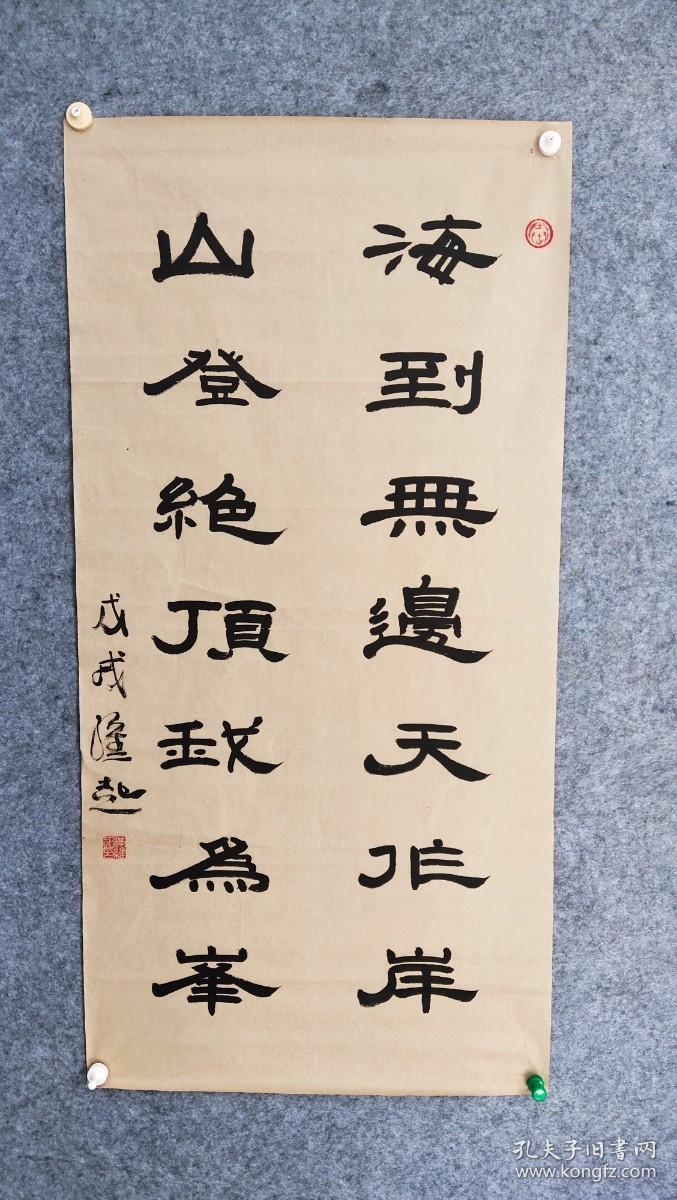 海到無邊天作岸
山登絶頂我為峯
戊戌
孔夫子旧书网
www.kongfz.com